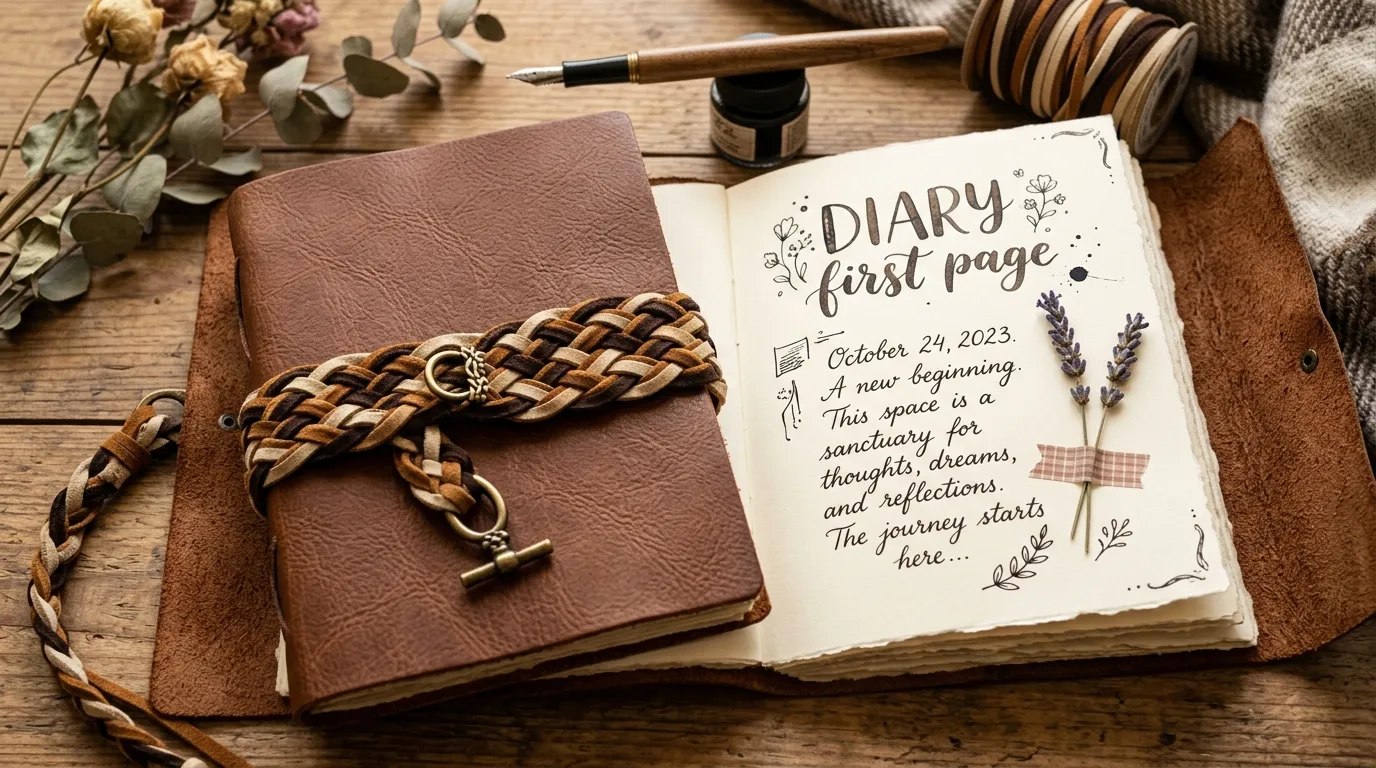 DIARY
first page
October 24, 2023.
A new beginning.
This space is a
sanctuary for
thoughts, dreams,
and reflections.
The journey starts
here...